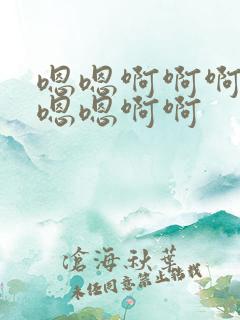 嗯嗯啊啊啊
嗯嗯啊啊
滄海秋葉
未经同意禁止转载